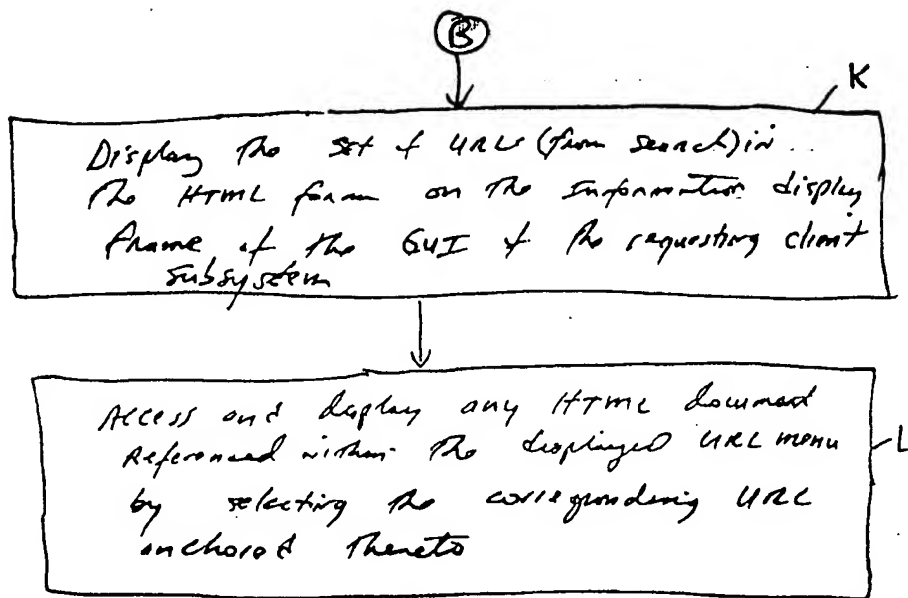 B
K
Display the set of URLs (from search) in
the HTML form on the Information display
frame of the GUI of the requesting client
subsystem
L
Access and display any HTML document
referenced within the displayed URL menu
by selecting the corresponding URL
anchored thereto